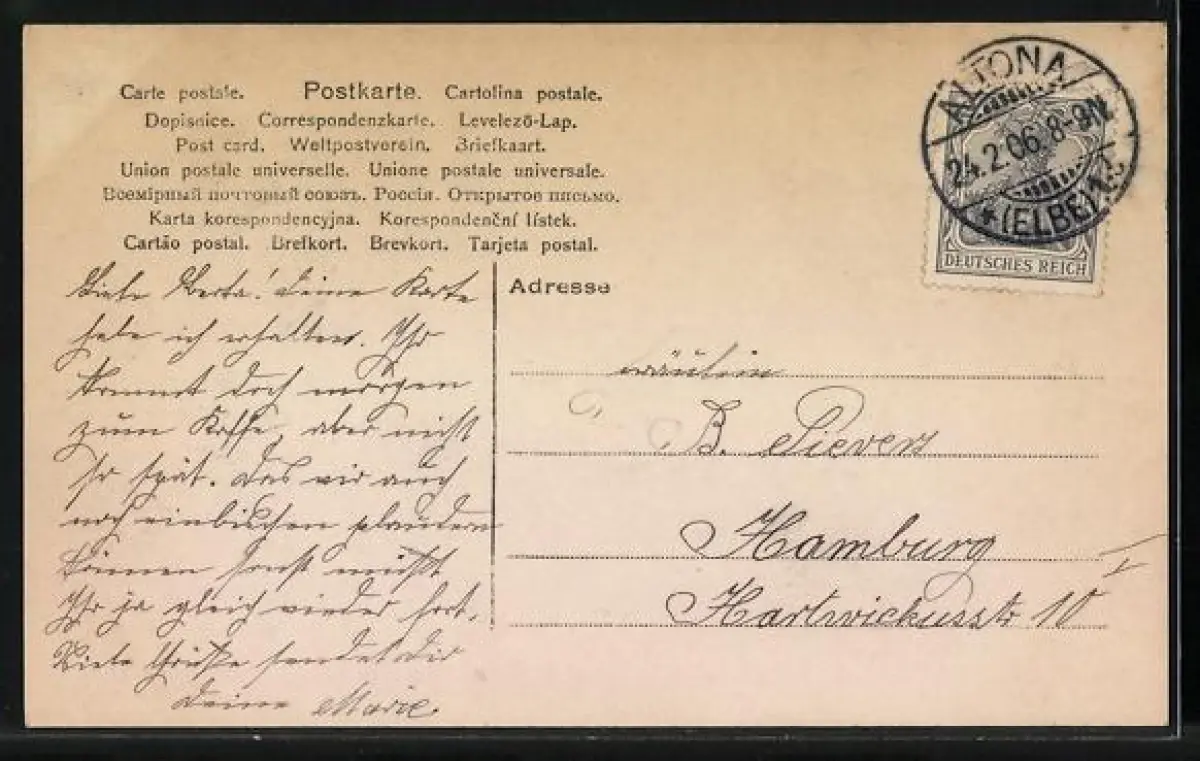 Carte postale. Postkarte. Cartolina postale.
Dopisnice. Correspondenzkarte. Levelező-Lap.
Post card. Weltpostverein. Briefkaart.
Union postale universelle. Unione postale universale.
Всемірный почтовый союзъ. Россія. Открытое письмо.
Karta korespondencyjna. Korespondenční lístek.
Cartão postal. Brefkort. Brevkort. Tarjeta postal.
ALTONA
24.2.06. 8-9N.
* (ELBE)
DEUTSCHES REICH
Liebe Berta! Deine Karte
habe ich erhalten. Ihr
kommt doch morgen
zum Kaffe, aber nicht
so spät. Das wir auch
noch einbischen plaudern
können sonst müßt
Ihr ja gleich wieder fort.
Viele Grüße sendet dir
Deine Marie
Adresse
Fräulein
B. Sievers
Hamburg
Hartwickusstr 10 I